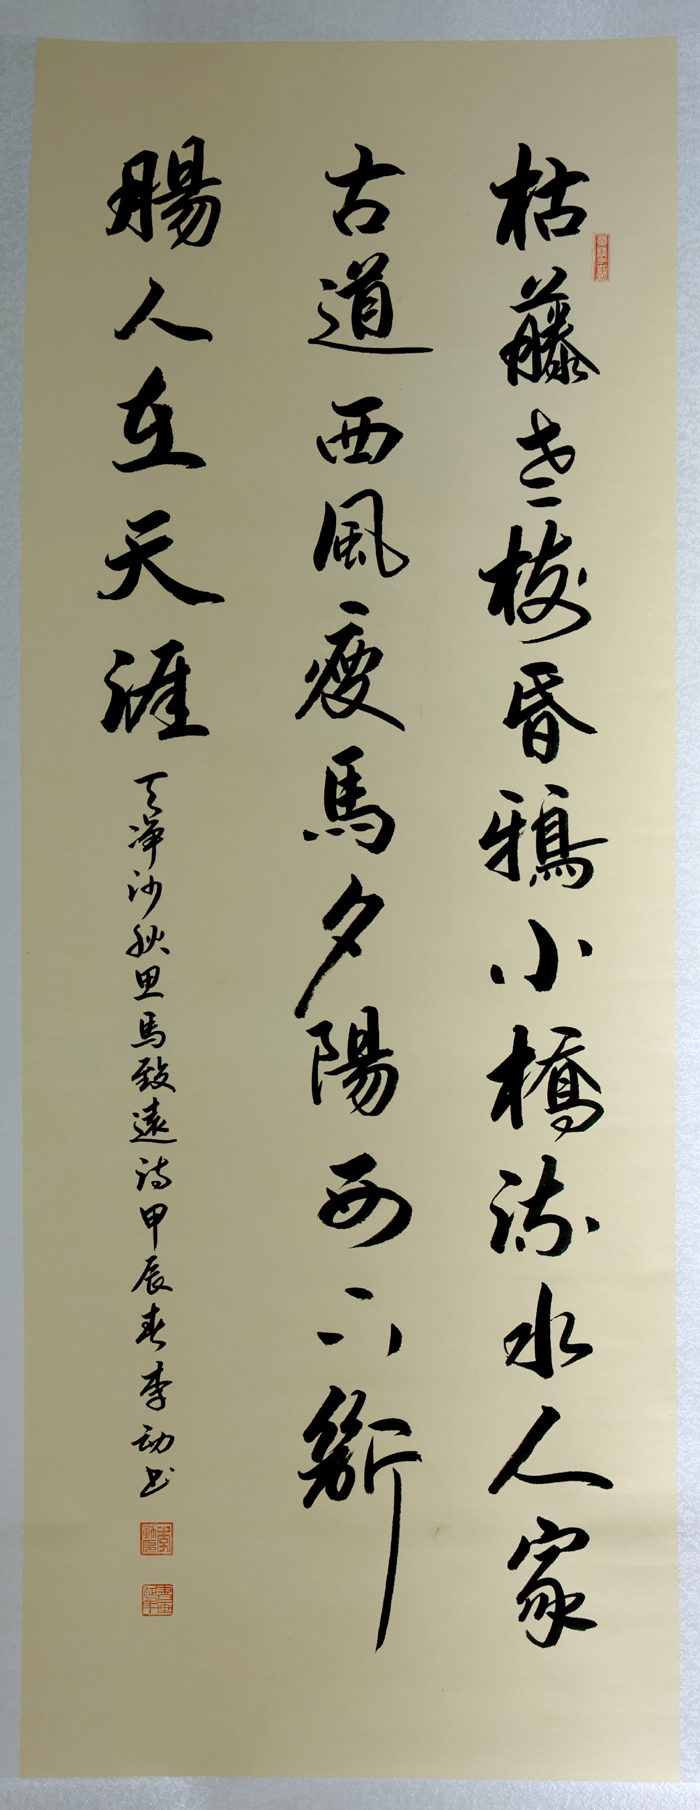 枯藤老樹昏鴉小橋流水人家
古道西風瘦馬夕陽西下斷
腸人在天涯
天淨沙秋思馬致遠詩甲辰春李動書